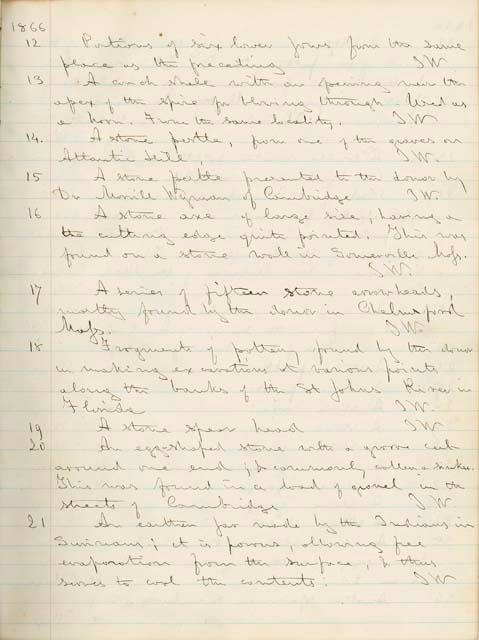 1866
12 Portions of six lower jaws from the same
place as the preceding JW
13 A conch shell with an opening near the
apex of the spire for blowing through. Used as
a horn. From the same locality. JW
14. A stone pestle, from one of the graves on
Atlantic Hill, JW.
15 A stone pestle presented to the donor by
Dr Morrill Wyman of Cambridge JW.
16 A stone axe of large size, having a
the cutting edge quite pointed. This was
found on a stone wall in Somerville Mass.
JW.
17 A series of fifteen stone arrowheads,
mostly found by the donor in Chelmsford
Mass. JW.
18 Fragments of pottery found by the donor
in making excavations at various points
along the banks of the St Johns River in
Florida JW
19 A stone spear head JW
20 An egg-shaped stone with a groove cut
around one end, & commonly called a sinker.
This was found in a load of gravel in the
streets of Cambridge JW
21 An earthen jar made by the Indians in
Surinam; it is porous, allowing free
evaporation from the surface, & thus
serves to cool the contents. JW